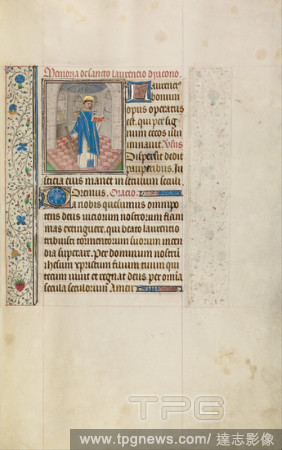 Memoria de sancto laurencio dyacono.
Laurenci
bonum
opus operatus
est. qui per sig
num crucis illu
minavit. Versus
Dispersit dedit
pauperibus. Ju
sticia eius manet in seculum seculi.
Oremus. Oracio.
Da nobis quesumus omnipo
tens deus viciorum nostrorum flam
mas extinguere. qui beato laurencio
tribuisti tormentorum suorum incen
dia superare. Per dominum nostru
ihesum xpristum filium tuum qui
tecum vivit et regnat deus per omnia
secula seculorum Amen
TPG
www.tpgnews.com/達志影像